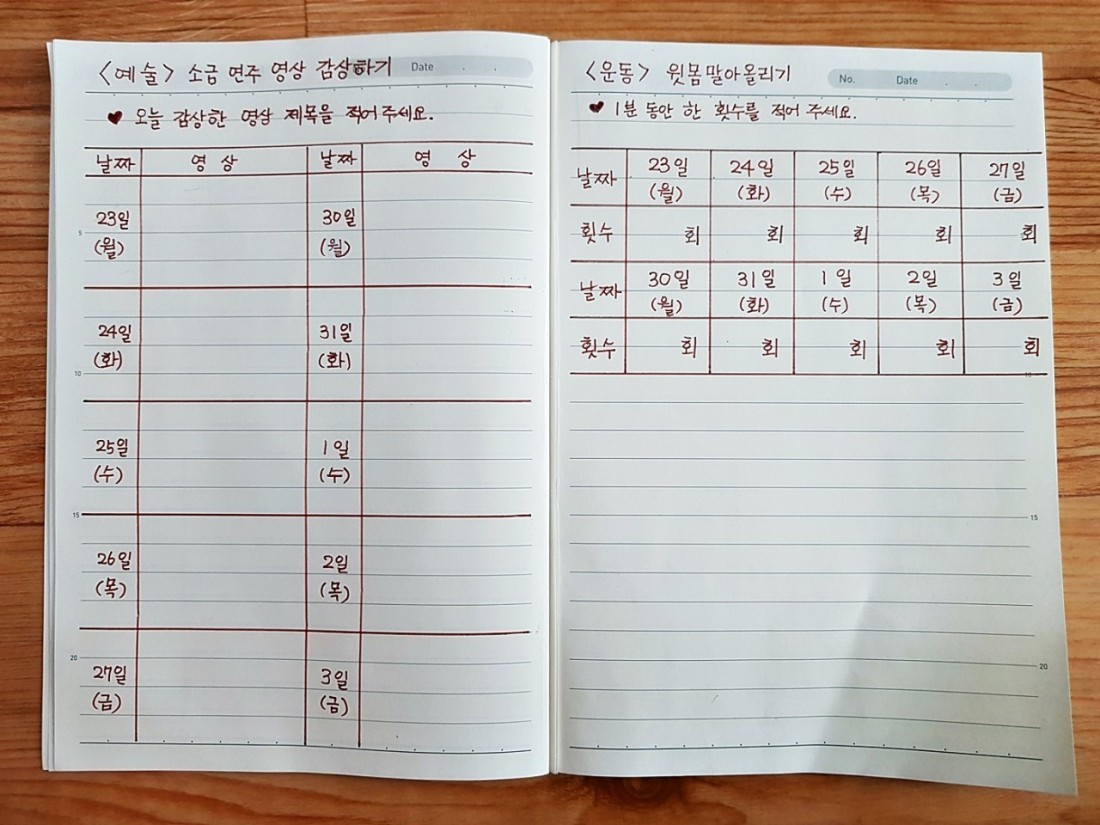 <예술> 소금 연주 영상 감상하기 Date
♥ 오늘 감상한 영상 제목을 적어 주세요.
날짜 영상 날짜 영상
23일 30일
(월) (월)
5
24일 31일
(화) (화)
10
25일 1일
(수) (수)
15
26일 2일
(목) (목)
20
27일 3일
(금) (금)
<운동> 윗몸말아올리기 No. Date
♥ 1분 동안 한 횟수를 적어 주세요.
날짜 23일 24일 25일 26일 27일
(월) (화) (수) (목) (금)
횟수 회 회 회 회 회
날짜 30일 31일 1일 2일 3일
(월) (화) (수) (목) (금)
횟수 회 회 회 회 회
10
15
20